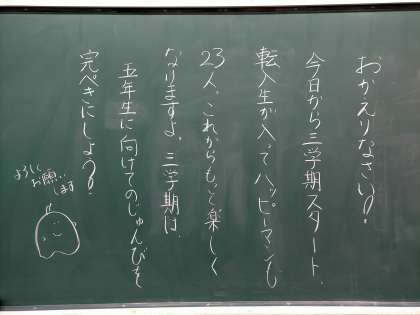 おかえりなさい!
今日から三学期スタート、
転入生が入ってハッピーマンも
23人。これからもっと楽しく
なりますよ。三学期は、
五年生に向けてのじゅんびを
完ぺきにしよう!
よろしく
お願い
します